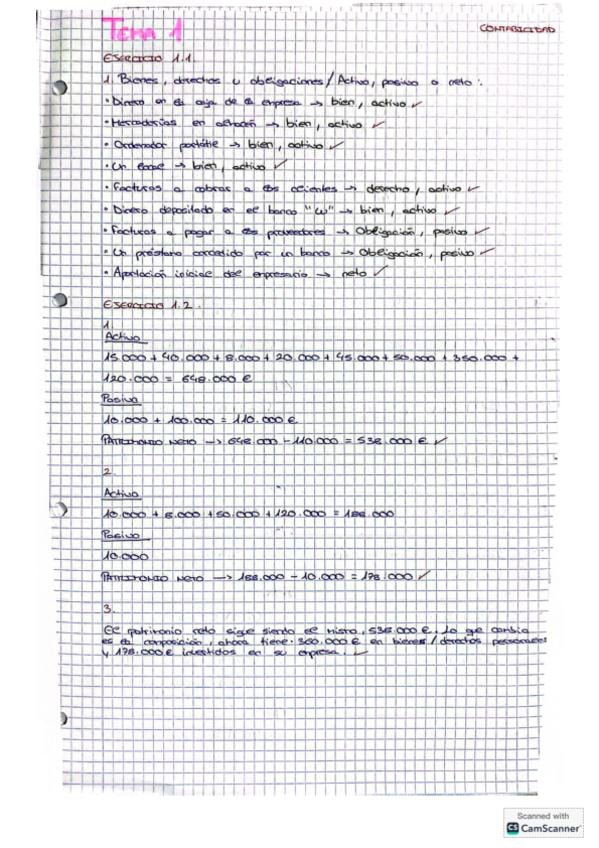 Tema 1
CONTABILIDAD
EJERCICIO 1.1.
1. Bienes, derechos u obligaciones / Activo, pasivo o neto:
• Dinero en la caja de la empresa → bien, activo ✓
• Mercaderías en almacén → bien, activo ✓
• Ordenador portátil → bien, activo ✓
• Un local → bien, activo ✓
• Facturas a cobrar a los clientes → derecho, activo ✓
• Dinero depositado en el banco "W" → bien, activo ✓
• Facturas a pagar a los proveedores → Obligación, pasivo ✓
• Un préstamo concedido por un banco → Obligación, pasivo ✓
• Aportación inicial del empresario → neto ✓
EJERCICIO 1.2.
1.
Activo
15.000 + 40.000 + 8.000 + 20.000 + 45.000 + 50.000 + 350.000 +
120.000 = 648.000 €
Pasivo
10.000 + 100.000 = 110.000 €
PATRIMONIO NETO → 648.000 - 110.000 = 538.000 € ✓
2.
Activo
10.000 + 8.000 + 50.000 + 120.000 = 188.000
Pasivo
10.000
PATRIMONIO NETO → 188.000 - 10.000 = 178.000 ✓
3.
El patrimonio neto sigue siendo el mismo, 538.000 €. Lo que cambia
es la composición, ahora tiene 360.000 € en bienes/derechos personales
y 178.000 € invertidos en su empresa. ✓
Scanned with
CS CamScanner